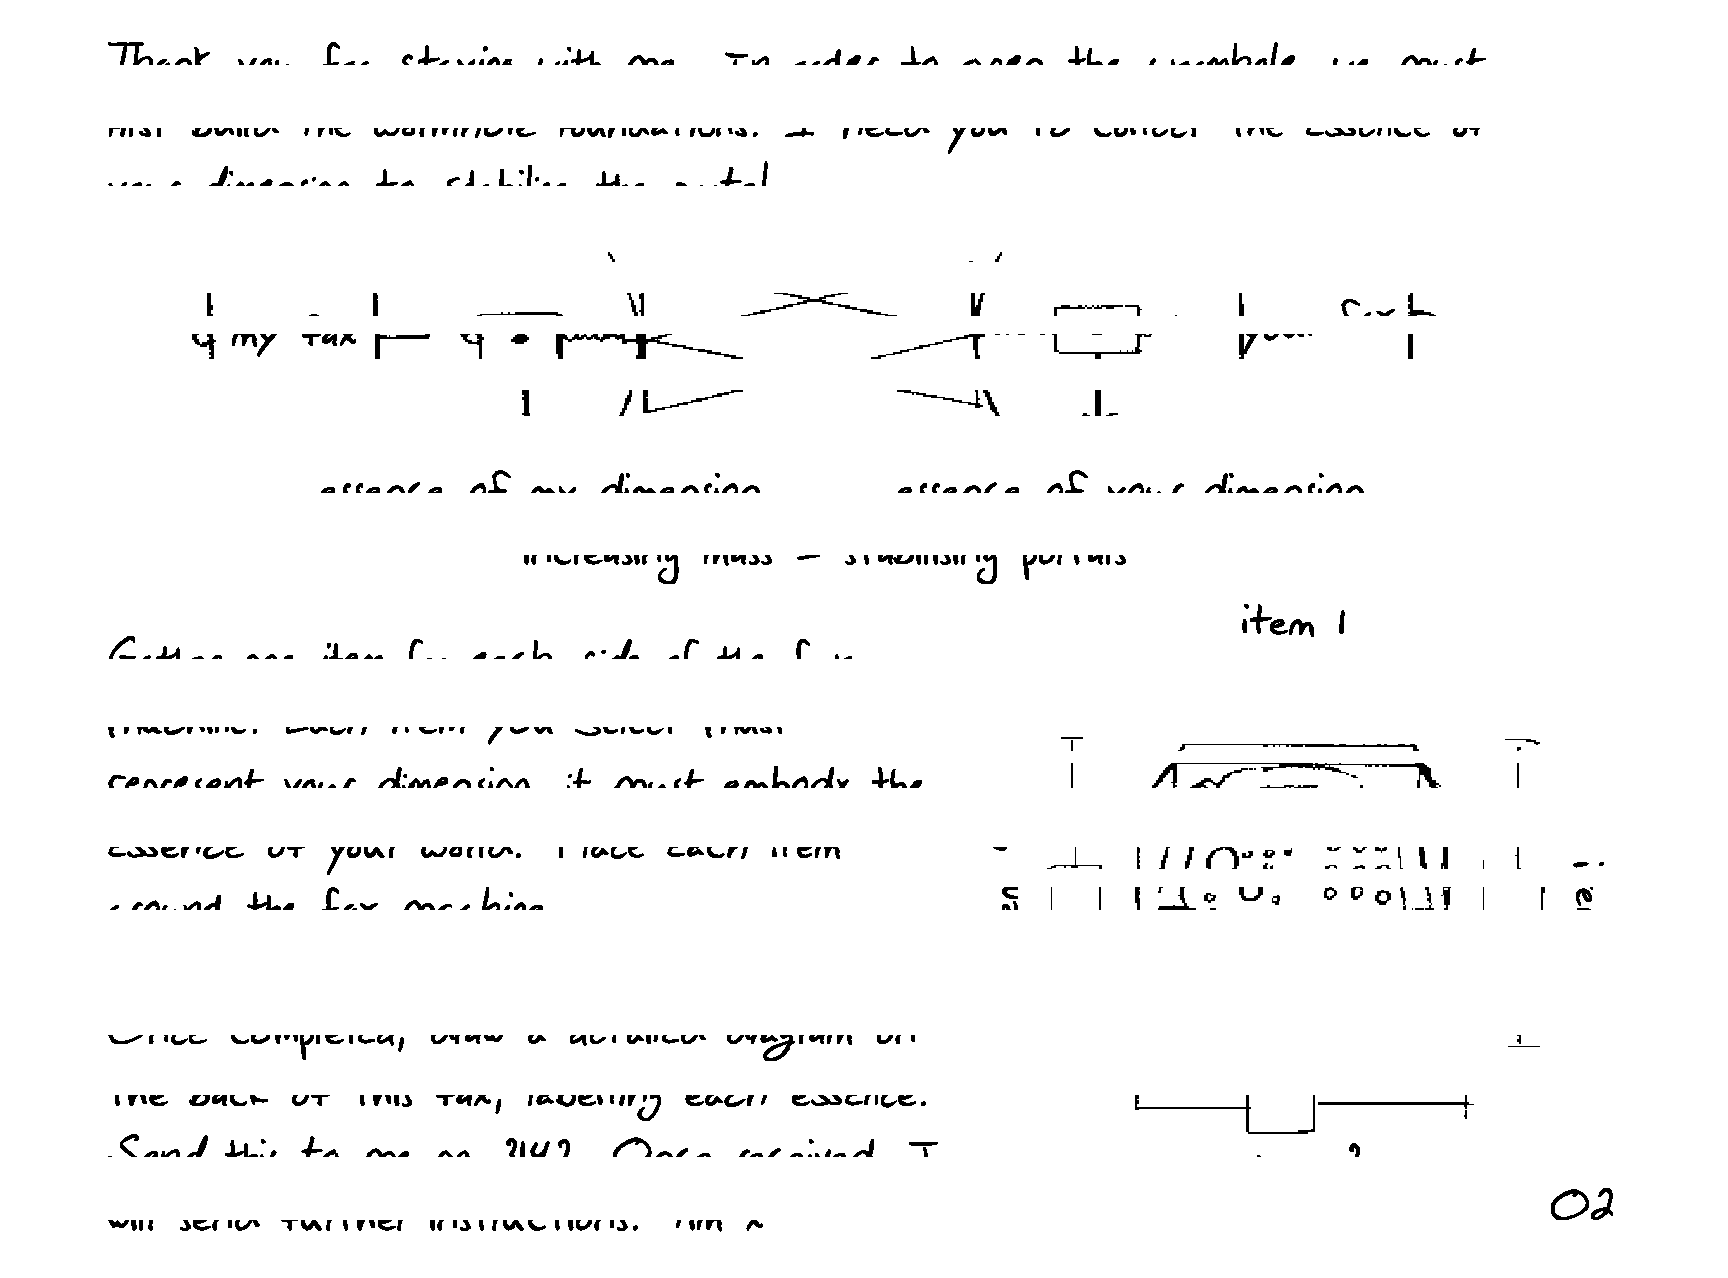 Thank you for staying with me. In order to open the wormhole we must
first build the wormhole foundations. I need you to collect the essence of
your dimension to stabilise the portal
my fax your fax
essence of my dimension essence of your dimension
increasing mass = stabilising portals
item 1
Gather one item for each side of the fax
machine. Each item you select must
represent your dimension, it must embody the
essence of your world. Place each item
around the fax machine
Once completed, draw a detailed diagram on
the back of this fax, labelling each essence.
Send this to me on Once received, I
will send further instructions.
02